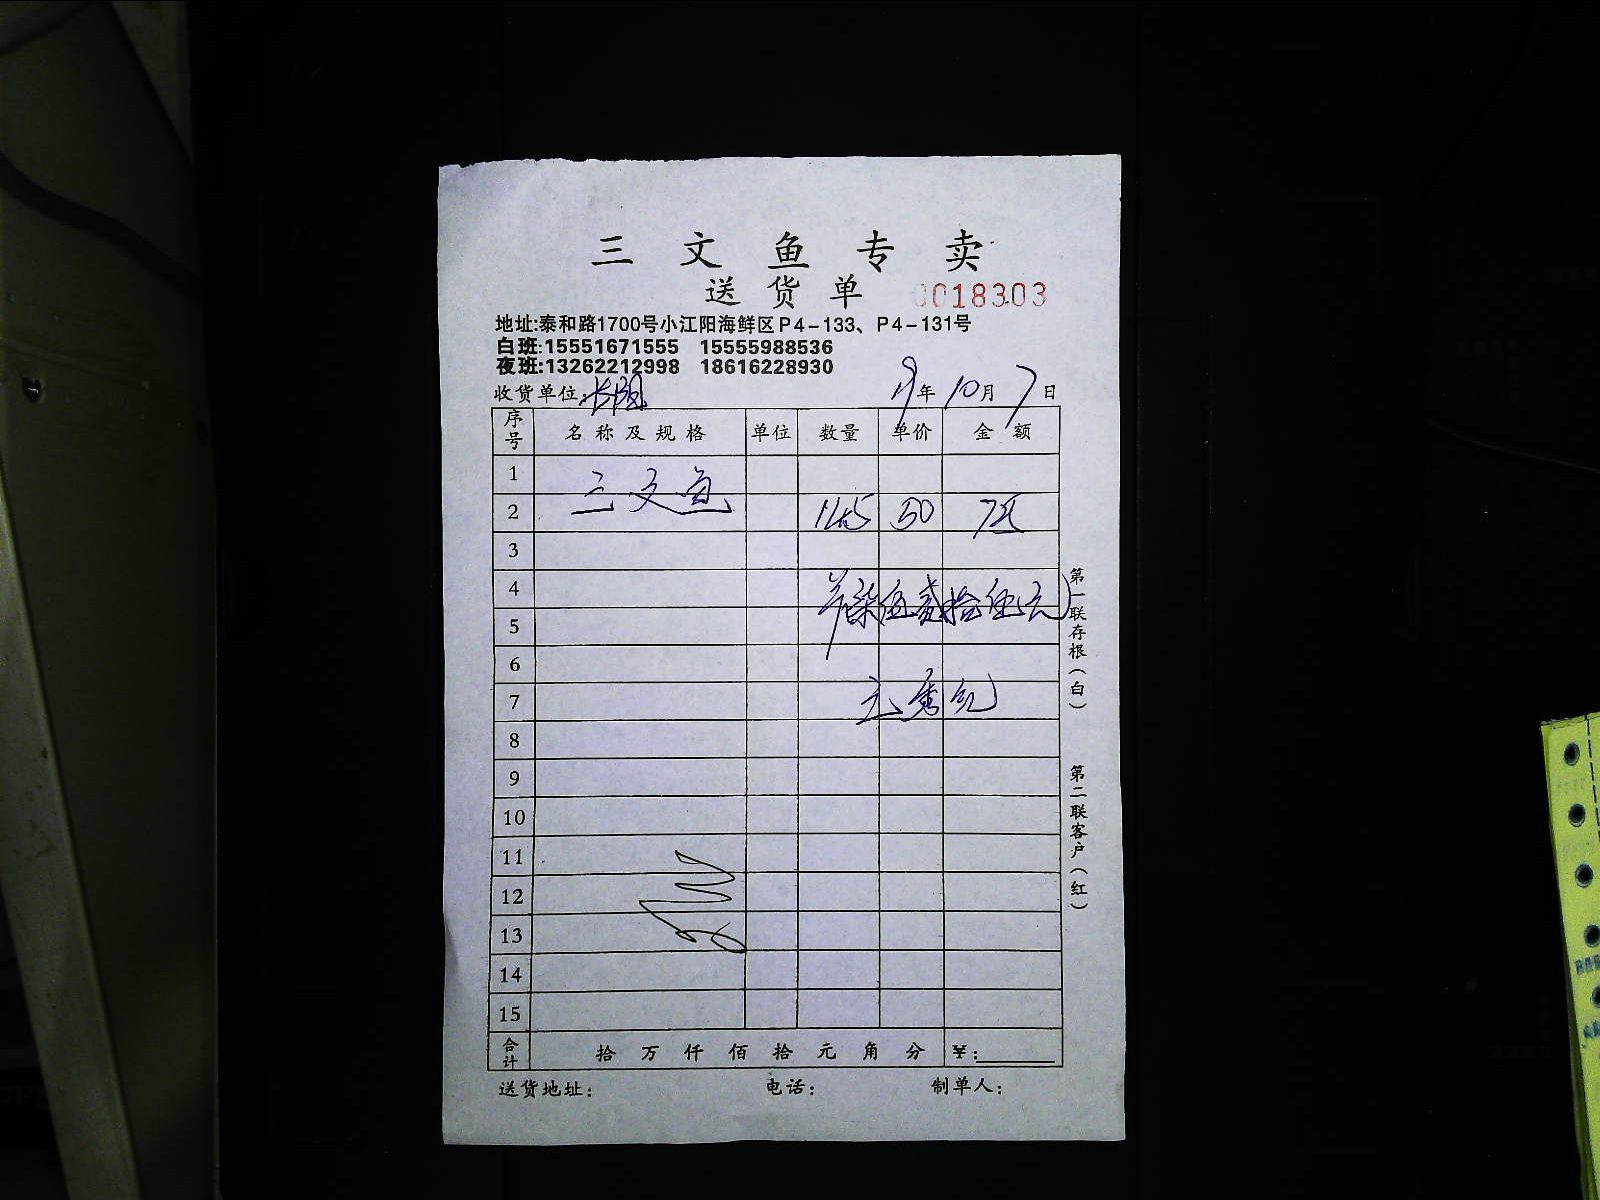 三文鱼专卖
送货单 0018303
地址:泰和路1700号小江阳海鲜区P4-133、P4-131号
白班:15551671555 15555988536
夜班:13262212998 18616228930
收货单位: 19年10月7日
序号 名称及规格 单位 数量 单价 金额
1 三文鱼
2 145 50
3
4
5
6
7
8
9
10
11
12
13
14
15
合计 拾万仟佰拾元角分 ¥:
送货地址: 电话: 制单人:
第一联存根(白)
第二联客户(红)